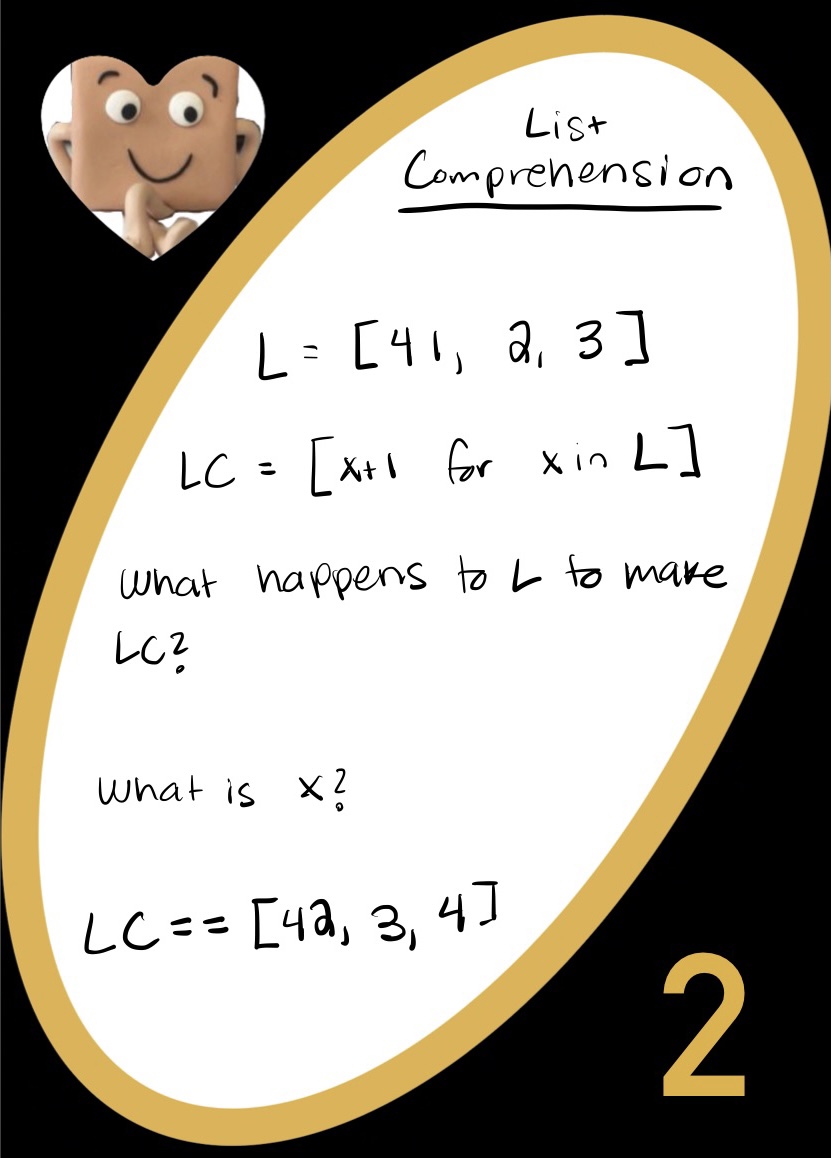 List
Comprehension
L = [41, 2, 3]
LC = [x+1 for x in L]
What happens to L to make
LC?
What is x?
LC == [42, 3, 4]
2